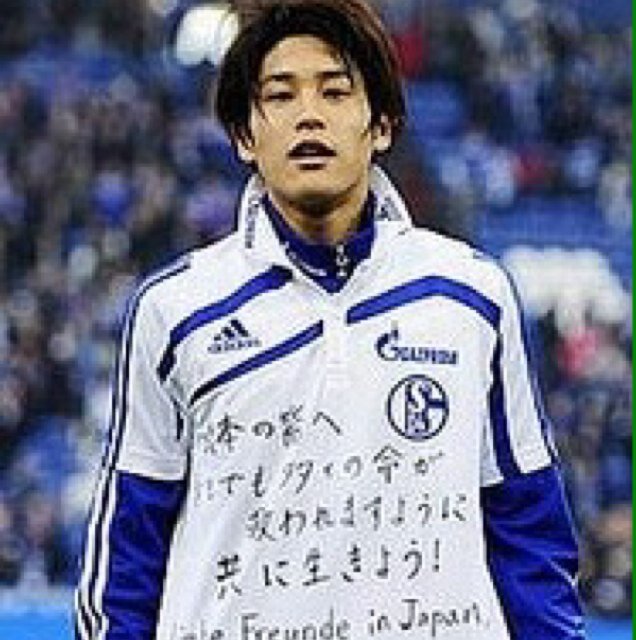 adidas
GAZPROM
日本の皆へ
少しでも多くの命が
救われますように
共に生きよう!
Liebe Freunde in Japan,